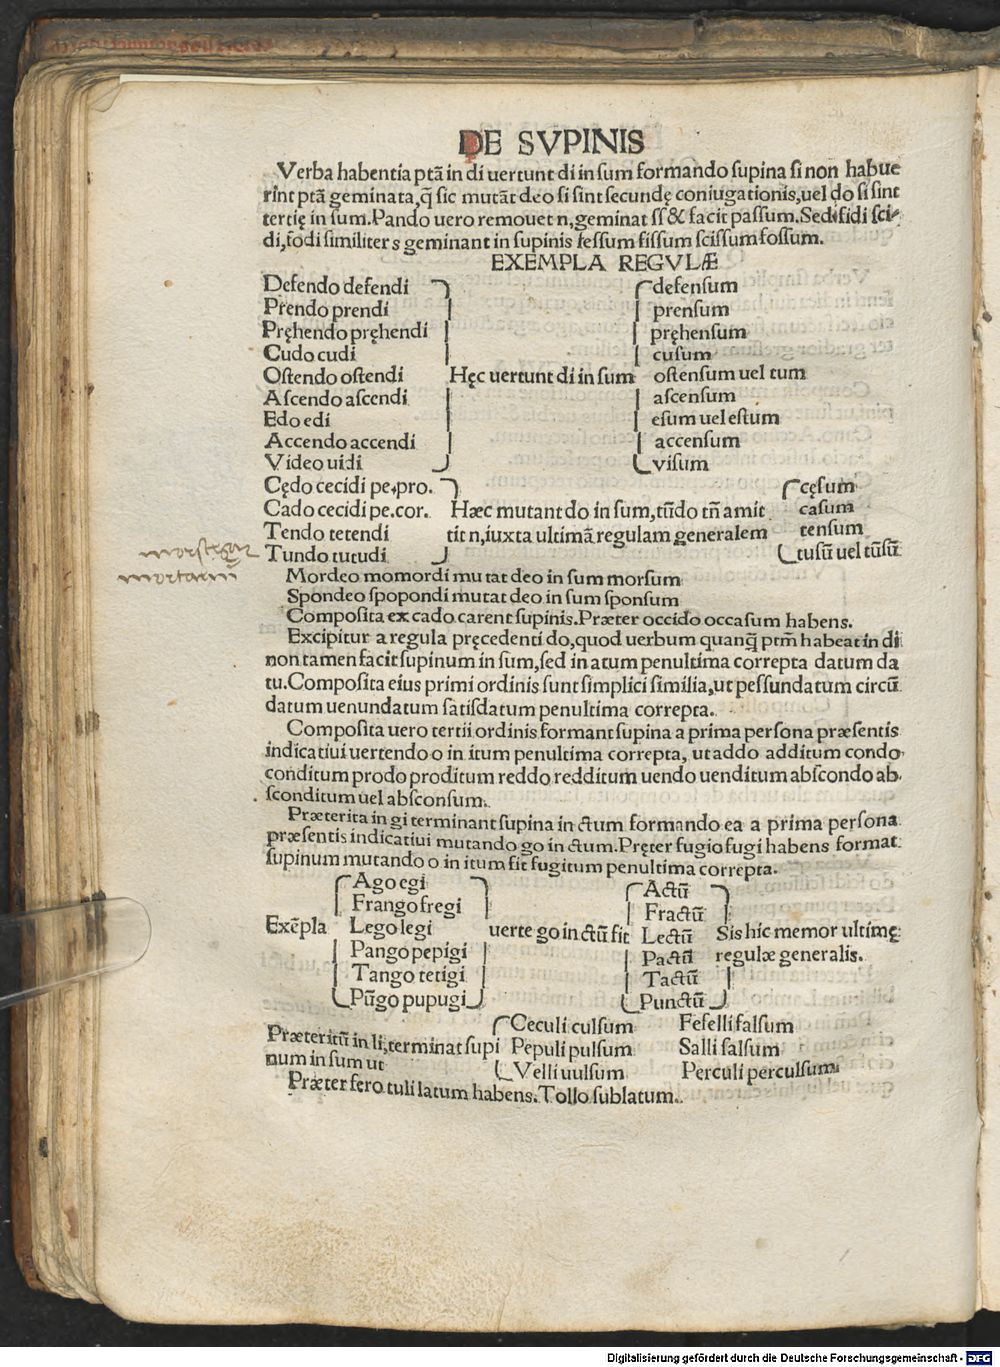 DE SVPINIS
Verba habentia ptā in di uertunt di in sum formando supina si non habue
rint ptā geminata, q̄ sic mutāt deo si sint secundę coniugationis, uel do si sint
tertię in sum. Pando uero remouet n, geminat ss & facit passum. Sed fidi sci-
di, fodi similiter s geminant in supinis fessum fissum scissum fossum.
EXEMPLA REGVLÆ
Defendo defendi defensum
Prendo prendi prensum
Pręhendo pręhendi pręhensum
Cudo cudi cusum
Ostendo ostendi Hęc uertunt di in sum ostensum uel tum
Ascendo ascendi ascensum
Edo edi esum uel estum
Accendo accendi accensum
Video uidi visum
Cędo cecidi pe. pro. cęsum
Cado cecidi pe. cor. Hæc mutant do in sum, tūdo tñ amit casum
Tendo tetendi tit n, iuxta ultimā regulam generalem tensum
Tundo tutudi tusū uel tūsū
mortariū
Mordeo momordi mutat deo in sum morsum
Spondeo spopondi mutat deo in sum sponsum
Composita ex cado carent supinis. Præter occido occasum habens.
Excipitur a regula pręcedenti do, quod uerbum quanq̄ ptm̄ habeat in di
non tamen facit supinum in sum, sed in atum penultima correpta datum da
tu. Composita eius primi ordinis sunt simplici similia, ut pessundatum circū
datum uenundatum satisdatum penultima correpta.
Composita uero tertii ordinis formant supina a prima persona præsentis
indicatiui uertendo o in itum penultima correpta, ut addo additum condo
conditum prodo proditum reddo redditum uendo uenditum abscondo ab-
sconditum uel absconsum.
Præterita in gi terminant supina in ctum formando ea a prima persona
præsentis indicatiui mutando go in ctum. Pręter fugio fugi habens format
supinum mutando o in itum fit fugitum penultima correpta.
Ago egi Actū
Frango fregi Fractū
Exēpla Lego legi uerte go in ctū fit Lectū Sis hic memor ultimę
Pango pepigi Pactū regulæ generalis.
Tango tetigi Tactū
Pūgo pupugi Punctū
Ceculi culsum Fefelli falsum
Præteritū in li, terminat supi Pepuli pulsum Salli salsum
num in sum ut Velli uulsum Perculi perculsum
Præter fero tuli latum habens. Tollo sublatum.
Digitalisierung gefördert durch die Deutsche Forschungsgemeinschaft - DFG